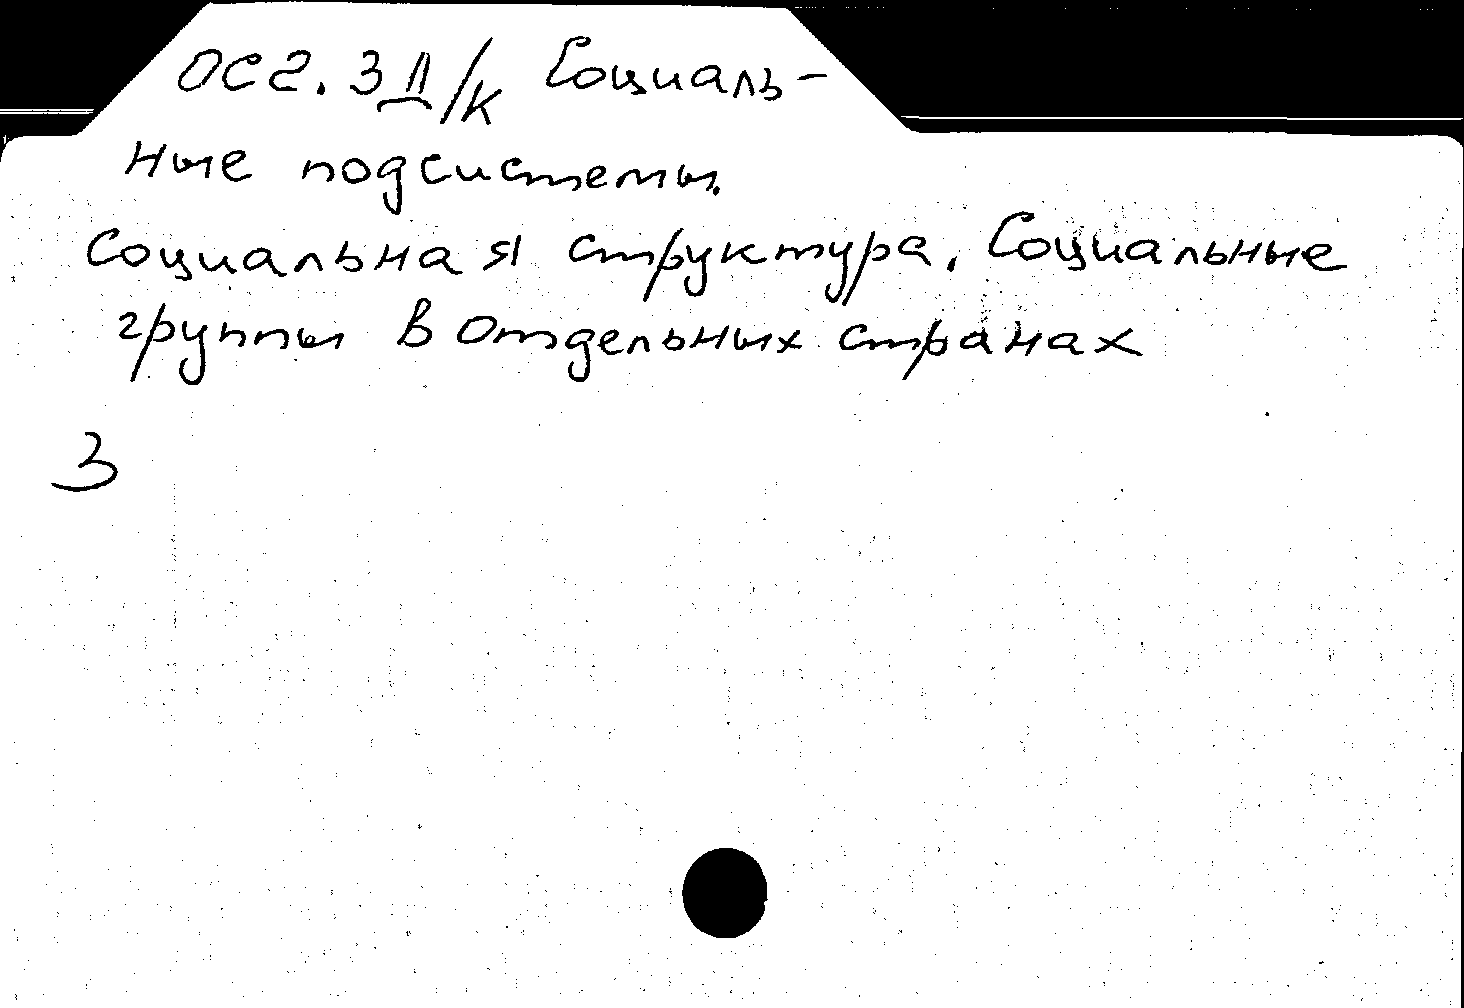 ОС2.3Д/К Социаль-
ные подсистемы.
Социальная структура. Социальные
группы в отдельных странах
3